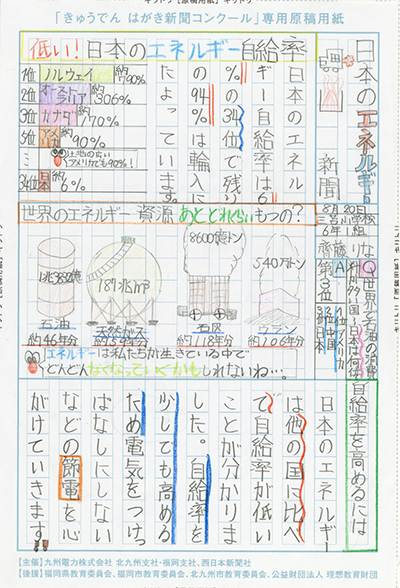 「きゅうでん はがき新聞コンクール」専用原稿用紙
日本のエネルギー新聞
8月20日
三宮小学校
6年1組
齊藤りな
低い!日本のエネルギー自給率
1位 ノルウェイ 約790%
2位 オーストラリア 約306%
3位 カナダ 約170%
5位 アメリカ 約90%
土地の広いアメリカでも90%!
34位 日本 約6%
日本のエネル
ギー自給率は6
%の34位で残り
の94%は輸入に
たよっています。
世界のエネルギー資源あとどれくらいもつの?
1兆3832億
石油
約46年分
187兆m³
天然ガス
約59年分
8600億トン
石炭
約118年分
540万トン
ウラン
約106年分
エネルギーは私たちが生きている中で
どんどんなくなっていくかもしれないね…。
Q世界で石油の消費
が多い国、日本は何位
A1位アメリカ
2位中国
第3位
自給率を高めるには
日本のエネルギー
は他の国に比べ
て自給率が低い
ことが分かりま
した。自給率を
少しでも高める
ため電気をつけっ
ぱなしにしない
などの節電を心
がけていきます!!
【主催】九州電力株式会社 北九州支社・福岡支社、西日本新聞社
【後援】福岡県教育委員会、福岡市教育委員会、北九州市教育委員会、公益財団法人 理想教育財団